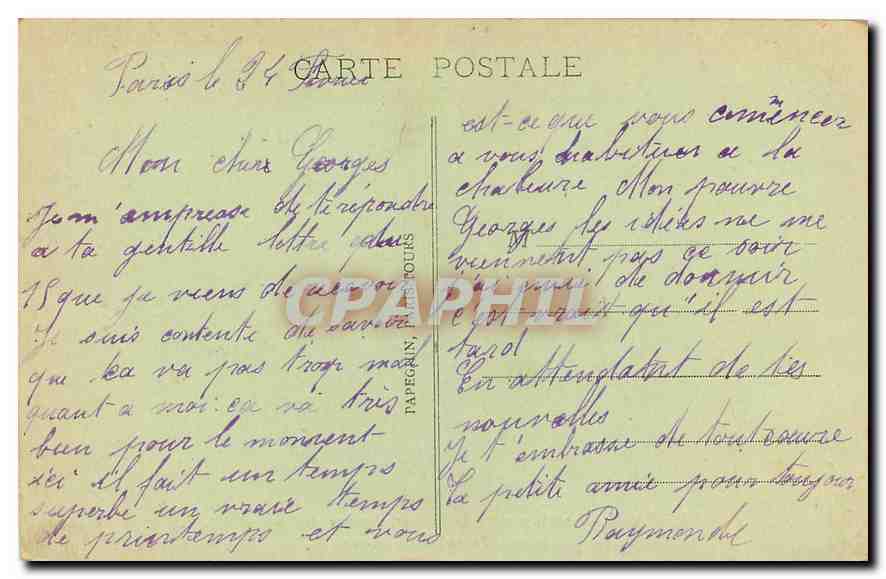 CARTE POSTALE
Paris le 24
Mon chère Georges
Je m'amprease de te répondre
a ta gentille lettre du
15 que je viens de recevoir
Je suis contente de savoir
que ca va pas trop mal
quant a moi ca va très
bien pour le moment
ici il fait un temps
superbe un vraie temps
de printemps et vous
est-ce que vous commencer
a vous habituer a la
chaleure Mon pauvre
Georges les idées ne me
viennent pas ce soir
j'ai envie de dormir
c'est vrait qu'il est
tard
En attendant de tes
nouvelles
Je t'embrasse de tout coeure
Ta petite amie pour toujour
Raymonde
PAPEGHIN, PARIS-TOURS
CPAPHIL